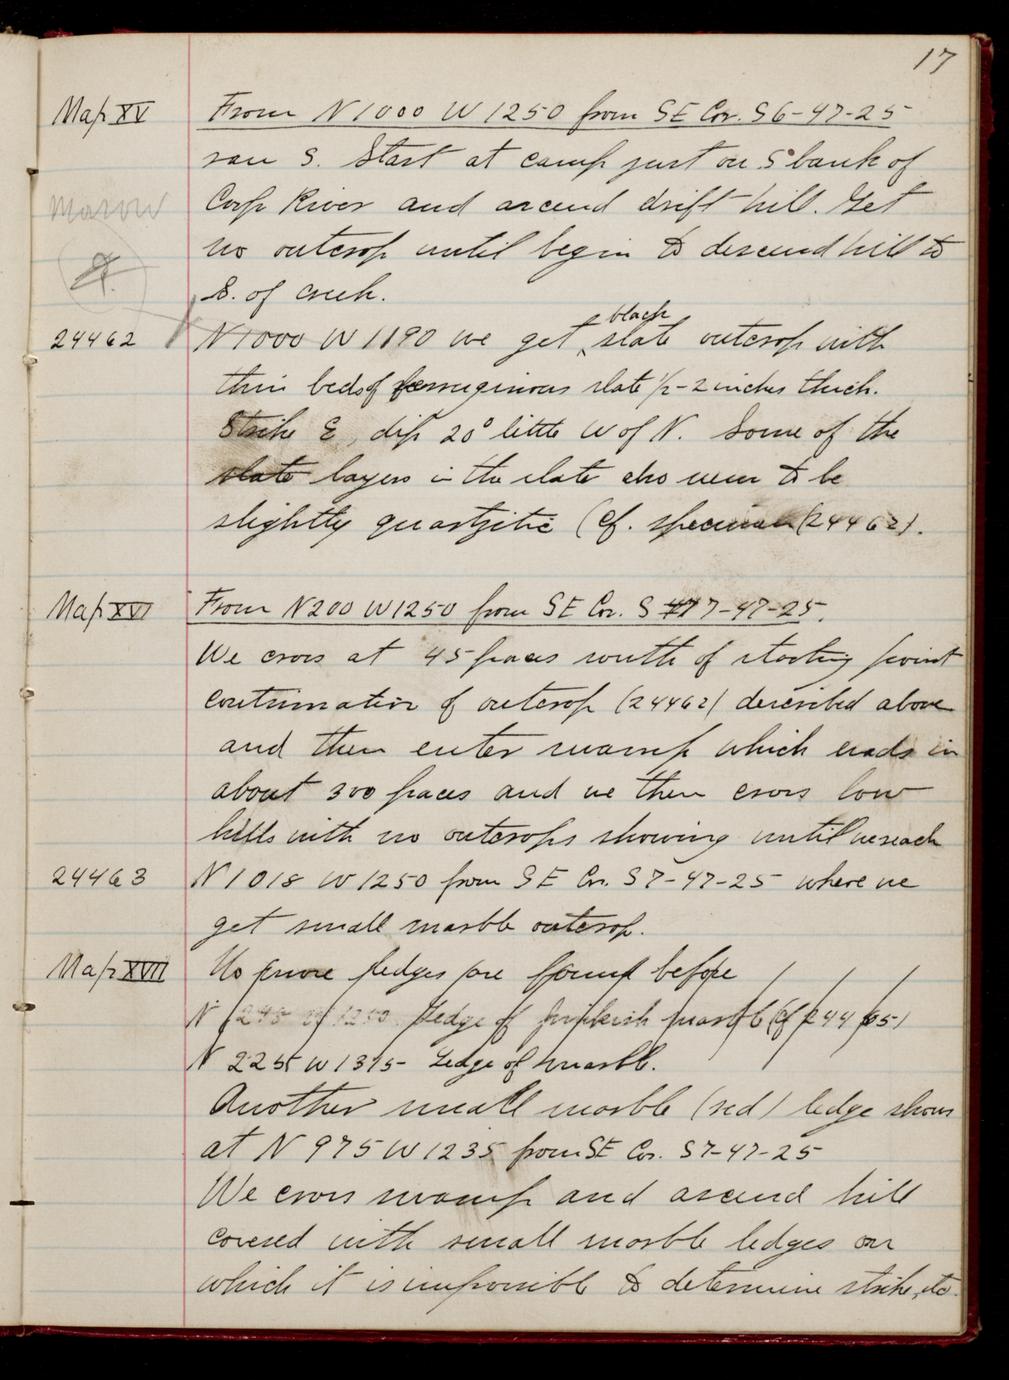 17
Map XV From N 1000 W 1250 from SE Cor. S 6-47-25
ran S. Start at camp just on S bank of
Carp River and ascend drift hill. Get
no outcrop until begin to descend hill to
S. of creek.
24462 N 1000 W 1190 we get black slate outcrop with
thin beds of ferruginous slate 1/2-2 inches thick.
Strike E, dip 20° little W of N. Some of the
slate layers in the slate also seem to be
slightly quartzitic (Cf. specimen (24462).
Map XVI From N200 W1250 from SE Cor. S 7-47-25.
We cross at 45 paces south of starting point
continuation of outcrop (24462) described above
and then enter swamp which ends in
about 300 paces and we then cross low
hills with no outcrops showing until we reach
24463 N 1018 W 1250 from SE Cor. S 7-47-25 where we
get small marble outcrop.
Map XVII No more ledges are found before
N 1250 Ledge of pinkish marble (Cf 24465)
N 225 W 1375- Ledge of marble.
Another small marble (red) ledge shows
at N 975 W 1235 from SE Cor. S 7-47-25
We cross swamp and ascend hill
covered with small marble ledges on
which it is impossible to determine strike, etc.